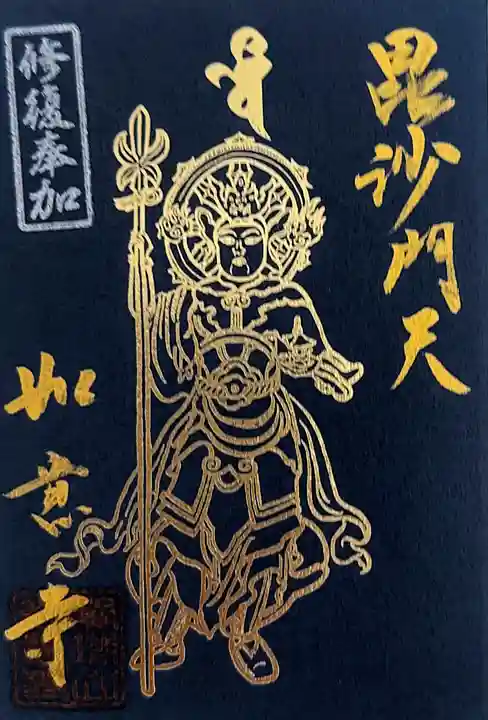 毘沙門天
修復奉加
如意寺